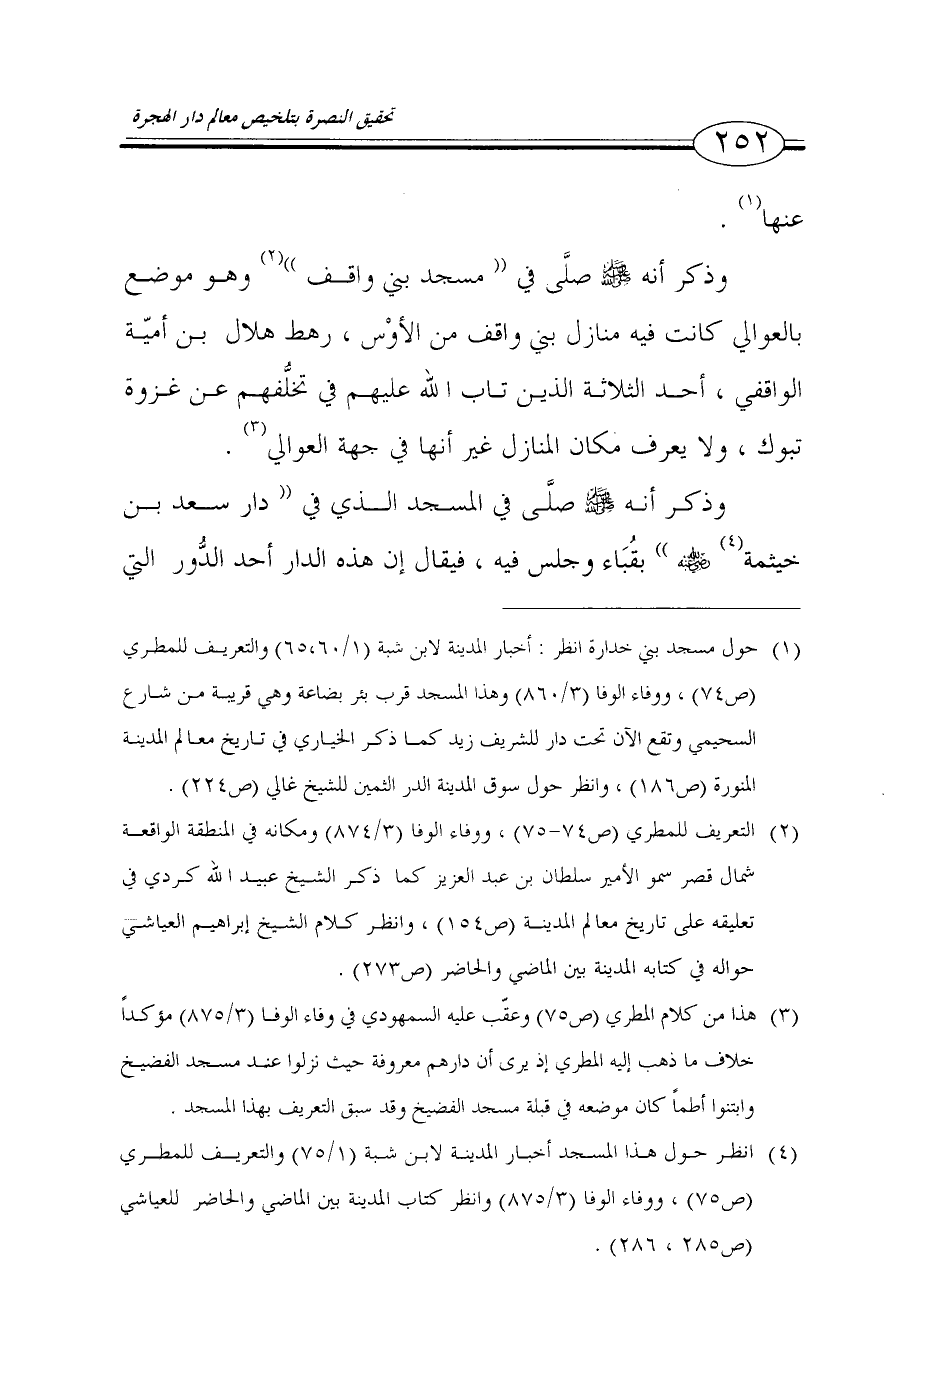 تحقيق النصرة بتلخيص معالم دار الهجرة
٢٥٢
عنها(١) .
وذكر أنه ﷺ صلَّى في (( مسجد بني واقف ))(٢) وهو موضع
بالعوالي كانت فيه منازل بني واقف من الأوْس ، رهط هلال بن أميّة
الواقفي ، أحد الثلاثة الذين تاب الله عليهم في تخلُّفهم عن غزوة
تبوك ، ولا يعرف مكان المنازل غير أنها في جهة العوالي(٣) .
وذكر أنه ﷺ صلَّى في المسجد الذي في (( دار سعد بن
خيثمة(٤) رضي الله عنه )) بقُبَاء وجلس فيه ، فيقال إن هذه الدار أحد الدُّور التي
(١) حول مسجد بني خدارة انظر : أخبار المدينة لابن شبة (٦٥،٦٠/١) والتعريف للمطري
(ص٧٤) ، ووفاء الوفا (٨٦٠/٣) وهذا المسجد قرب بئر بضاعة وهي قريبة من شارع
السحيمي وتقع الآن تحت دار للشريف زيد كما ذكر الخياري في تاريخ معالم المدينة
المنورة (ص١٨٦) ، وانظر حول سوق المدينة الدر الثمين للشيخ غالي (ص٢٢٤) .
(٢) التعريف للمطري (ص٧٤-٧٥) ، ووفاء الوفا (٨٧٤/٣) ومكانه في المنطقة الواقعة
شمال قصر سمو الأمير سلطان بن عبد العزيز كما ذكر الشيخ عبيد الله كردي في
تعليقه على تاريخ معالم المدينة (ص١٥٤) ، وانظر كلام الشيخ إبراهيم العياشي
حواله في كتابه المدينة بين الماضي والحاضر (ص٢٧٣) .
(٣) هذا من كلام المطري (ص٧٥) وعقّب عليه السمهودي في وفاء الوفا (٨٧٥/٣) مؤكداً
خلاف ما ذهب إليه المطري إذ يرى أن دارهم معروفة حيث نزلوا عند مسجد الفضيخ
وابتنوا أطماً كان موضعه في قبلة مسجد الفضيخ وقد سبق التعريف بهذا المسجد .
(٤) انظر حول هذا المسجد أخبار المدينة لابن شبة (٧٥/١) والتعريف للمطري
(ص٧٥) ، ووفاء الوفا (٨٧٥/٣) وانظر كتاب المدينة بين الماضي والحاضر للعياشي
(ص٢٨٥ ، ٢٨٦) .